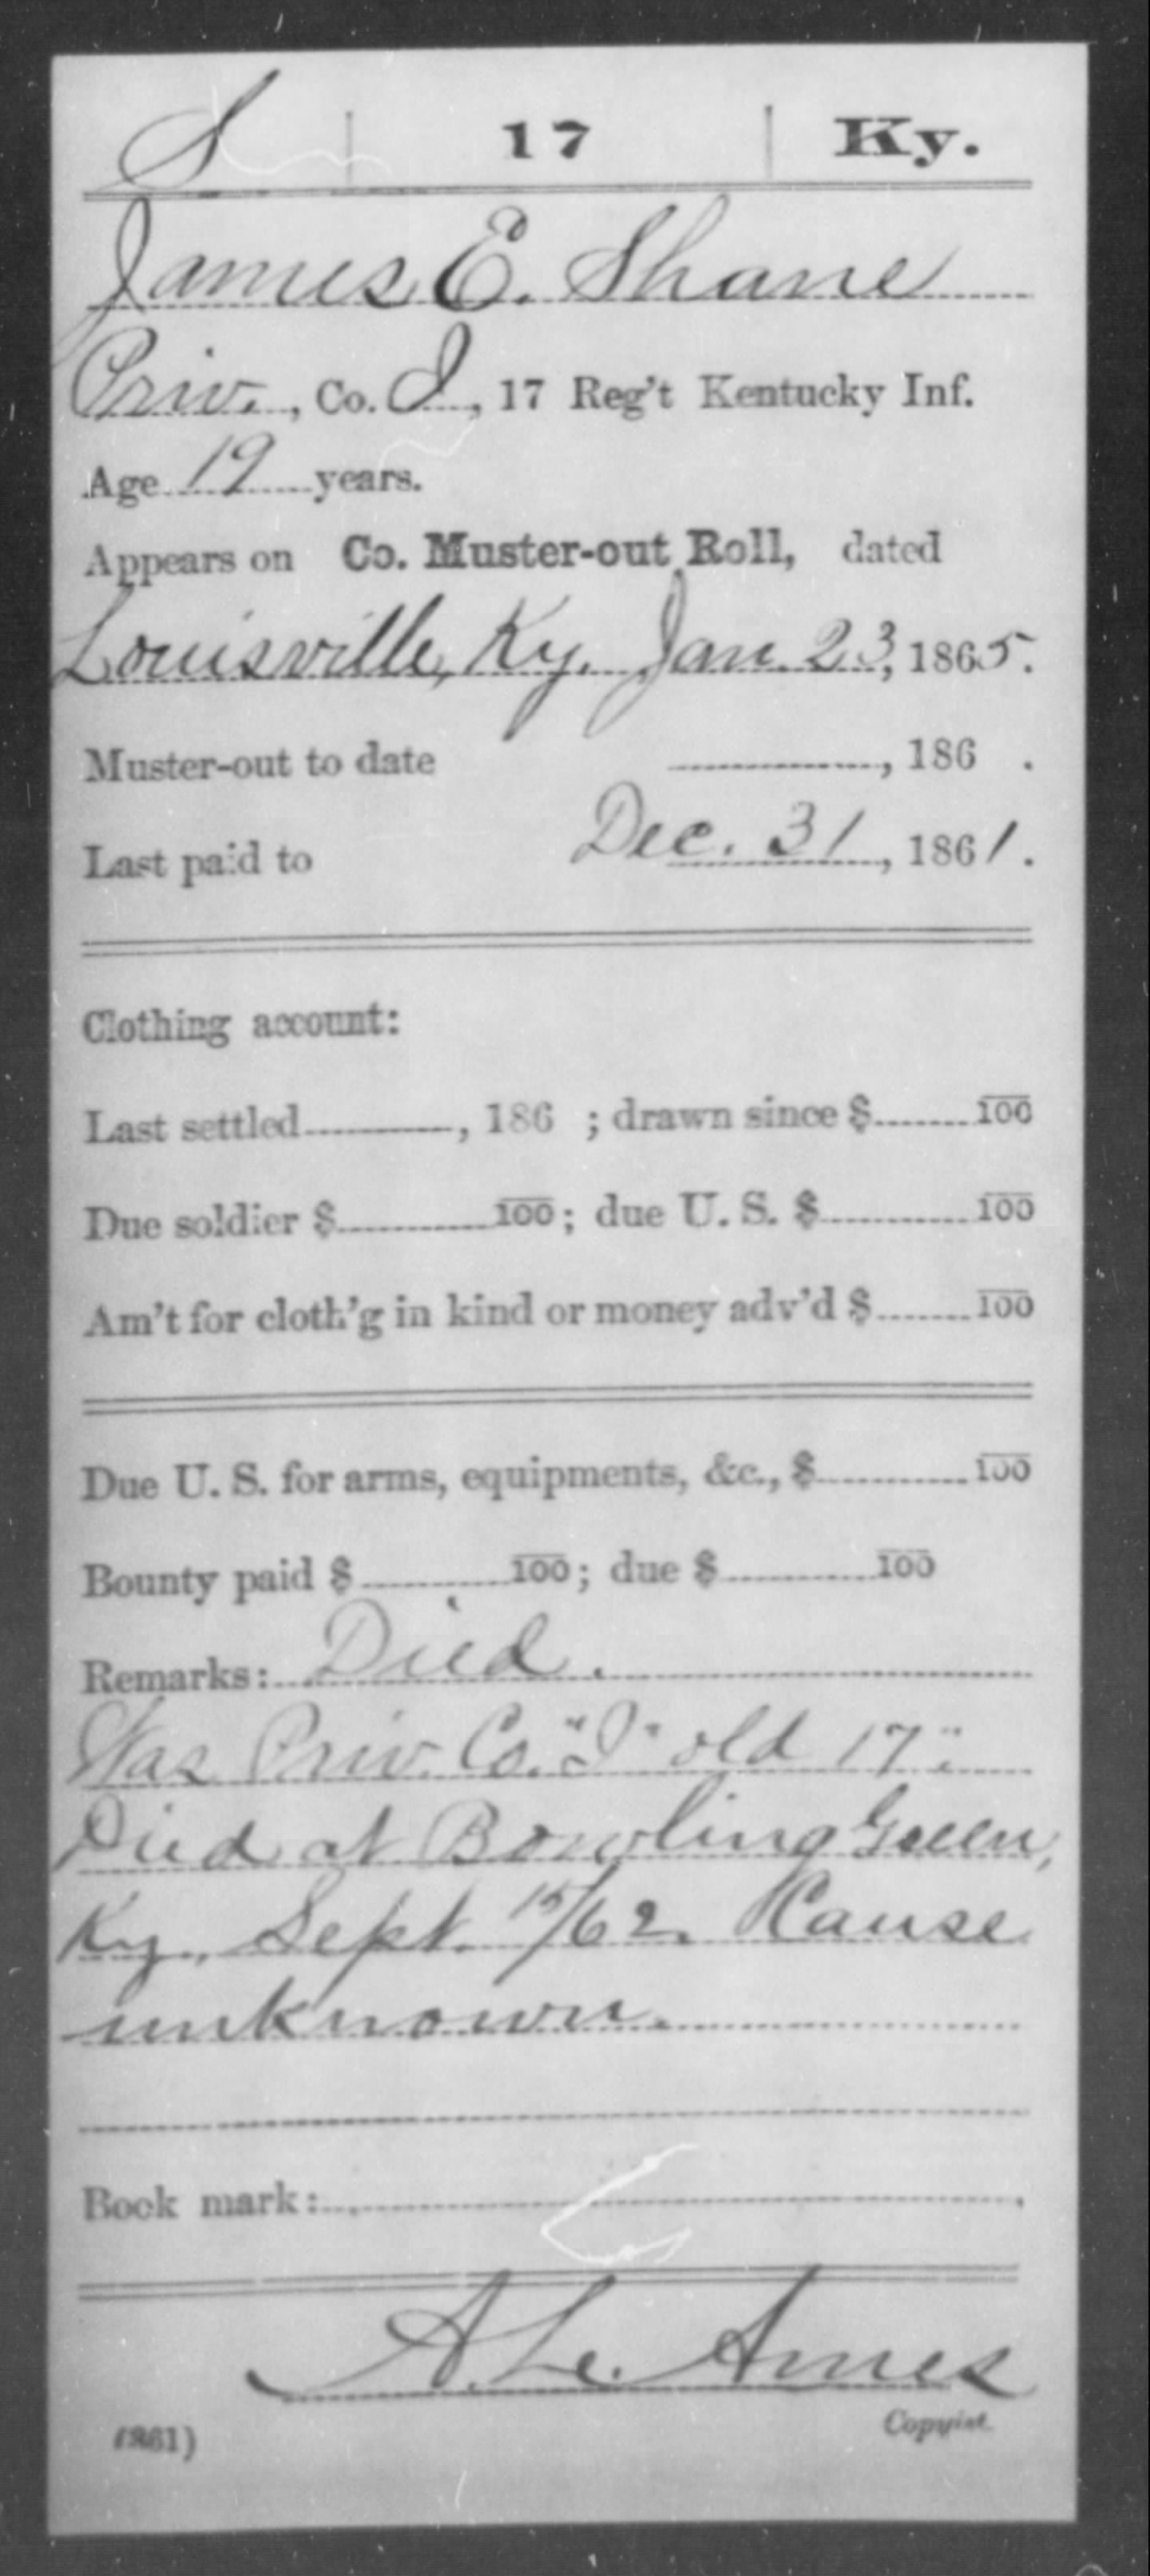 S | 17 | Ky.
James E. Shane
Priv., Co. I, 17 Reg't Kentucky Inf.
Age 19 years.
Appears on Co. Muster-out Roll, dated
Louisville, Ky. Jan. 23, 1865.
Muster-out to date , 186 .
Last paid to Dec. 31, 1861.
Clothing account:
Last settled , 186 ; drawn since $ 100
Due soldier $ 100; due U. S. $ 100
Am't for cloth'g in kind or money adv'd $ 100
Due U. S. for arms, equipments, &c., $ 100
Bounty paid $ 100; due $ 100
Remarks: Died.
Was Priv. Co. "I" old 17".
Died at Bowling Green,
Ky., Sept. 15/62. Cause
unknown.
Book mark:
Ames
(861) Copyist.